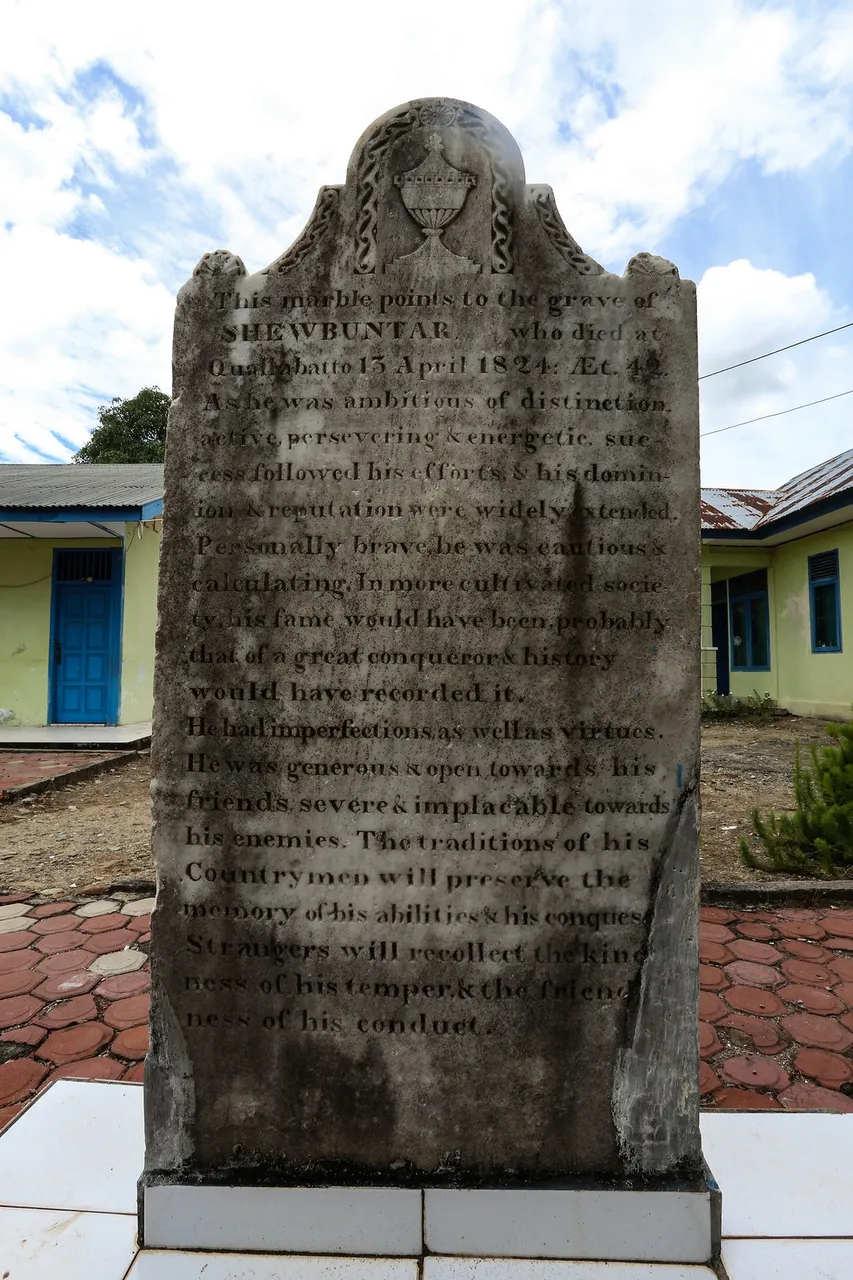 This marble points to the grave of
SHEWBUNTAR who died at
Quallabatto 13 April 1824: Æt. 42.
As he was ambitious of distinction,
active, persevering & energetic, suc-
cess followed his efforts, & his domin-
ion & reputation were widely extended.
Personally brave, he was cautious &
calculating. In more cultivated socie-
ty, his fame would have been, probably
that of a great conqueror & history
would have recorded it.
He had imperfections, as well as virtues.
He was generous & open towards his
friends, severe & implacable towards
his enemies. The traditions of his
Countrymen will preserve the
memory of his abilities & his conques
Strangers will recollect the kind
ness of his temper, & the friend
ness of his conduct.